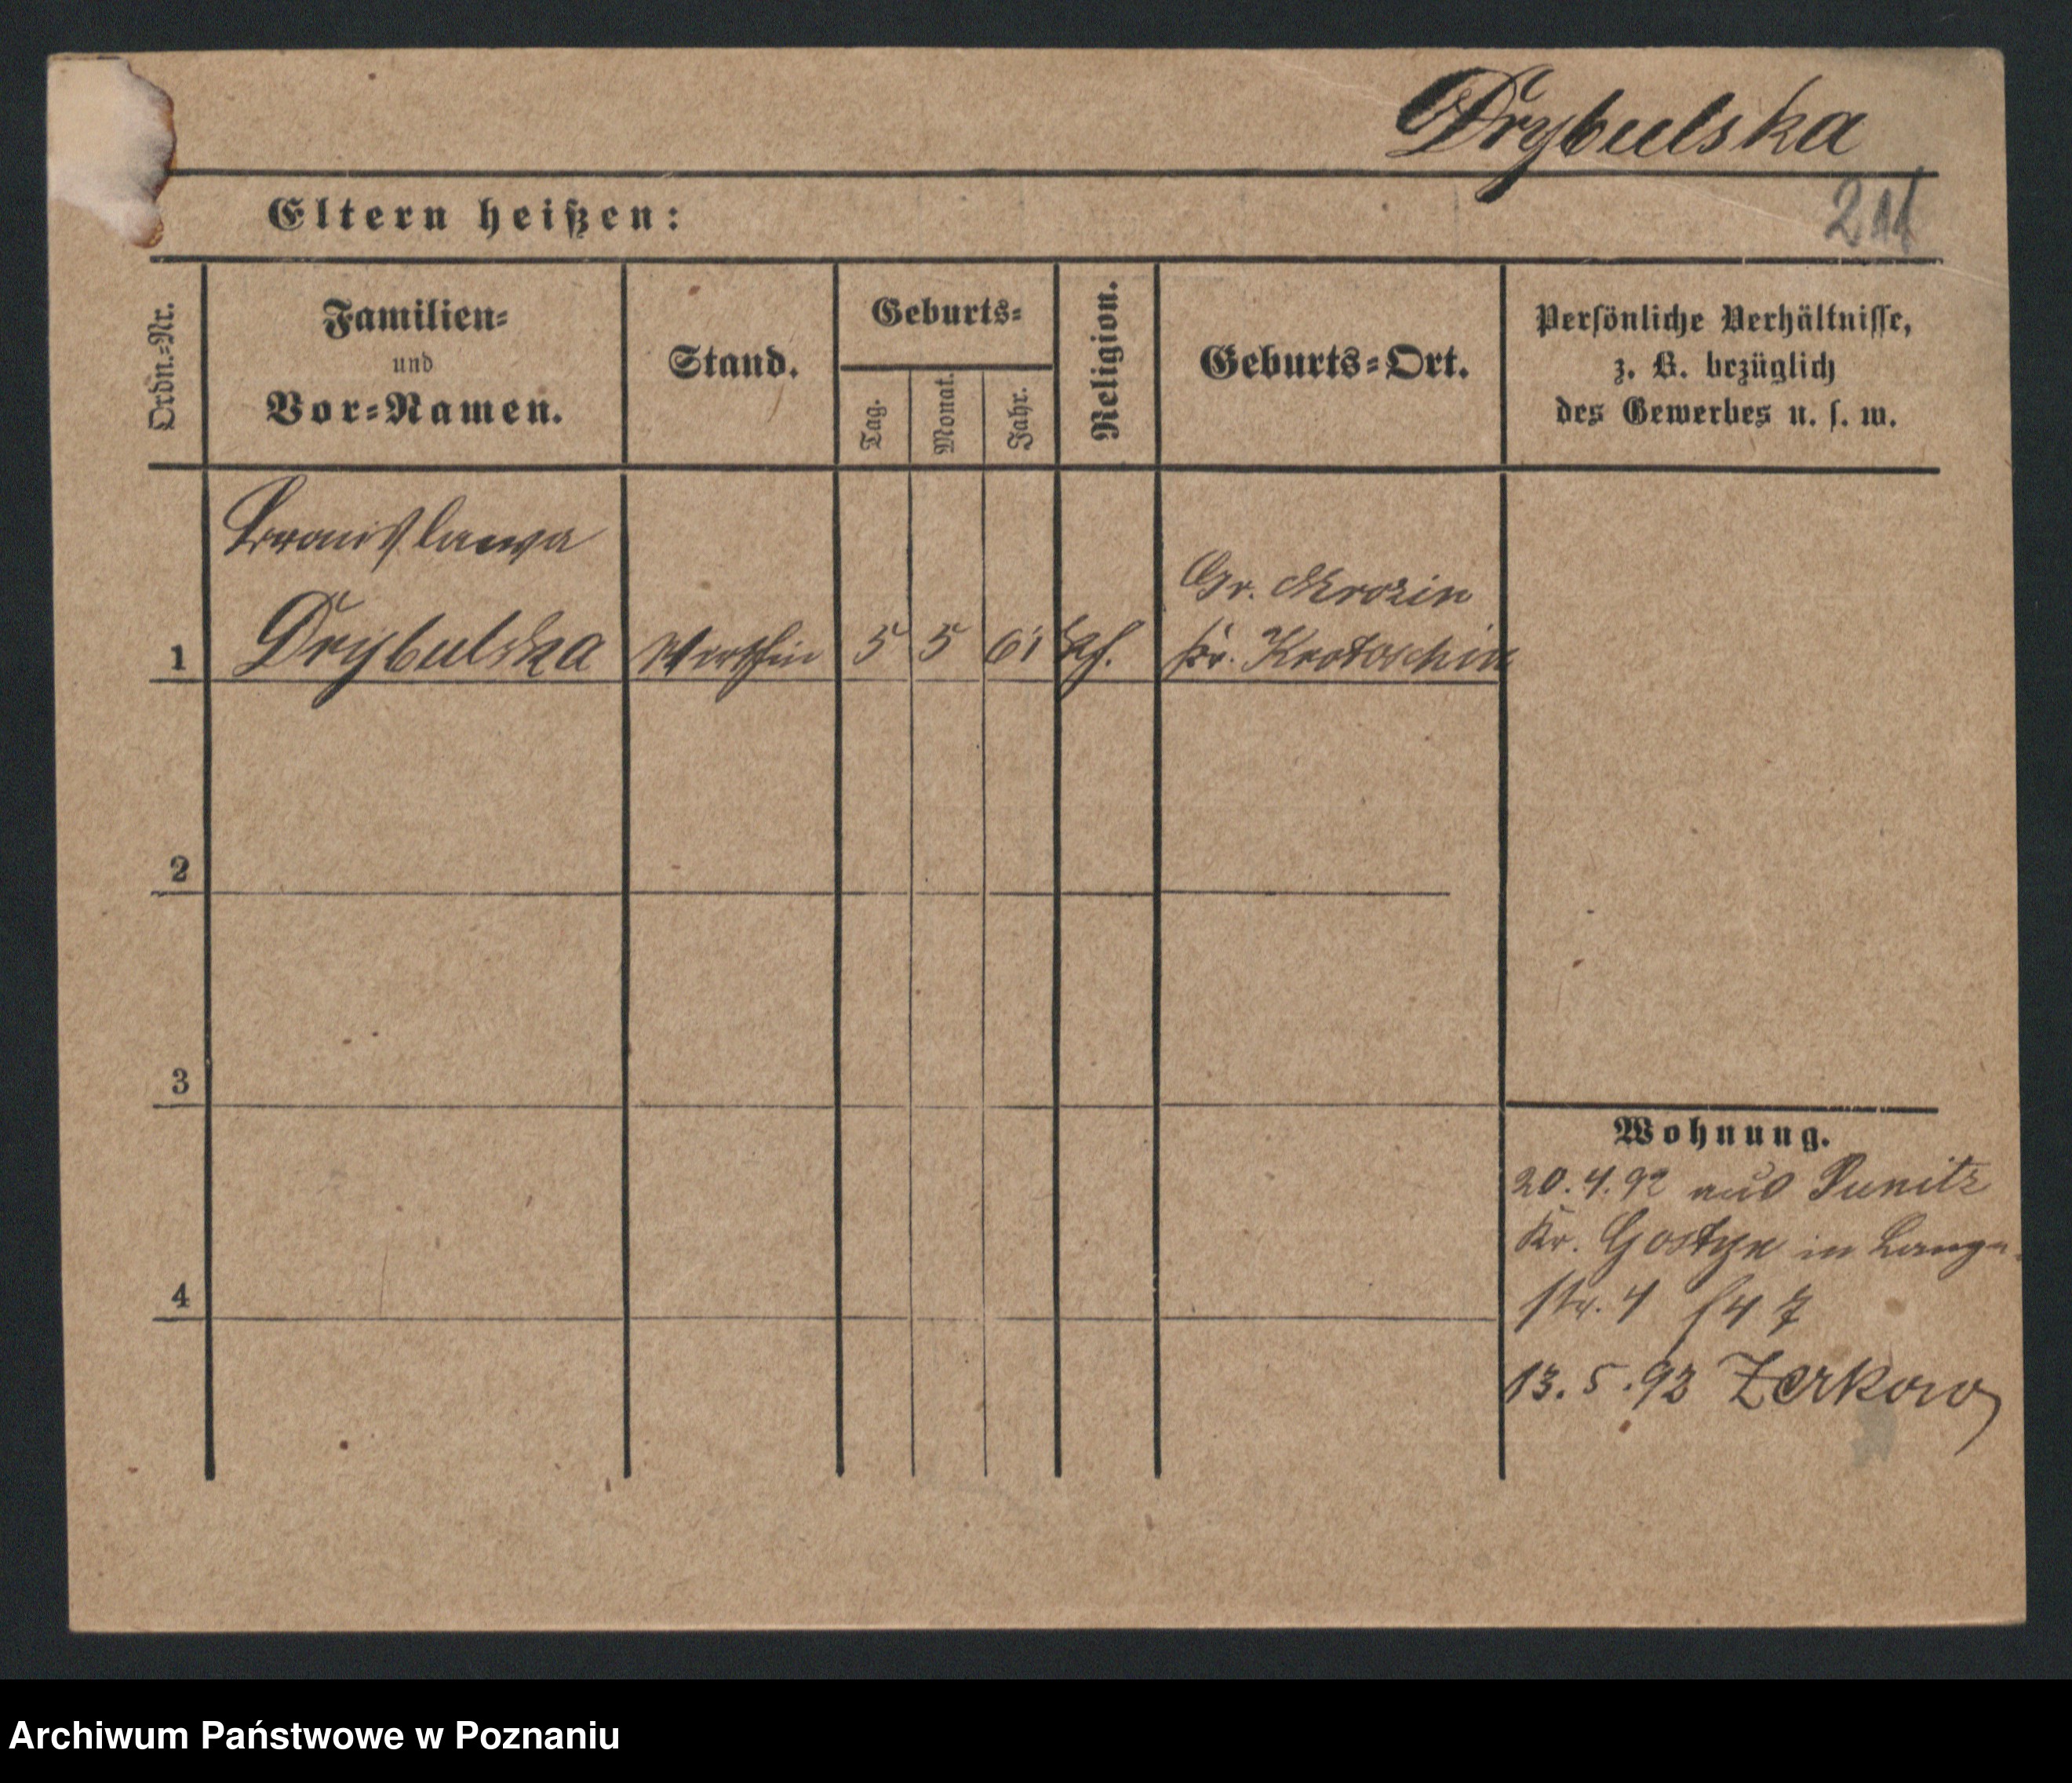 Drybulska
Eltern heißen:
Ordn.-Nr.
Familien-
und
Vor-Namen.
Stand.
Geburts-
Tag.
Monat.
Jahr.
Religion.
Geburts-Ort.
Persönliche Verhältnisse,
z. B. bezüglich
des Gewerbes u. s. w.
Bronislawa
Gr.
1 Drybulska Wirthin 5 5 61 kf. Kr. Krotoschin
2
3
4
Wohnung.
20.4.92 aus Punitz
Kr. Gostyn in Lange-
str. 4
13.5.92 Zerkow
Archiwum Państwowe w Poznaniu